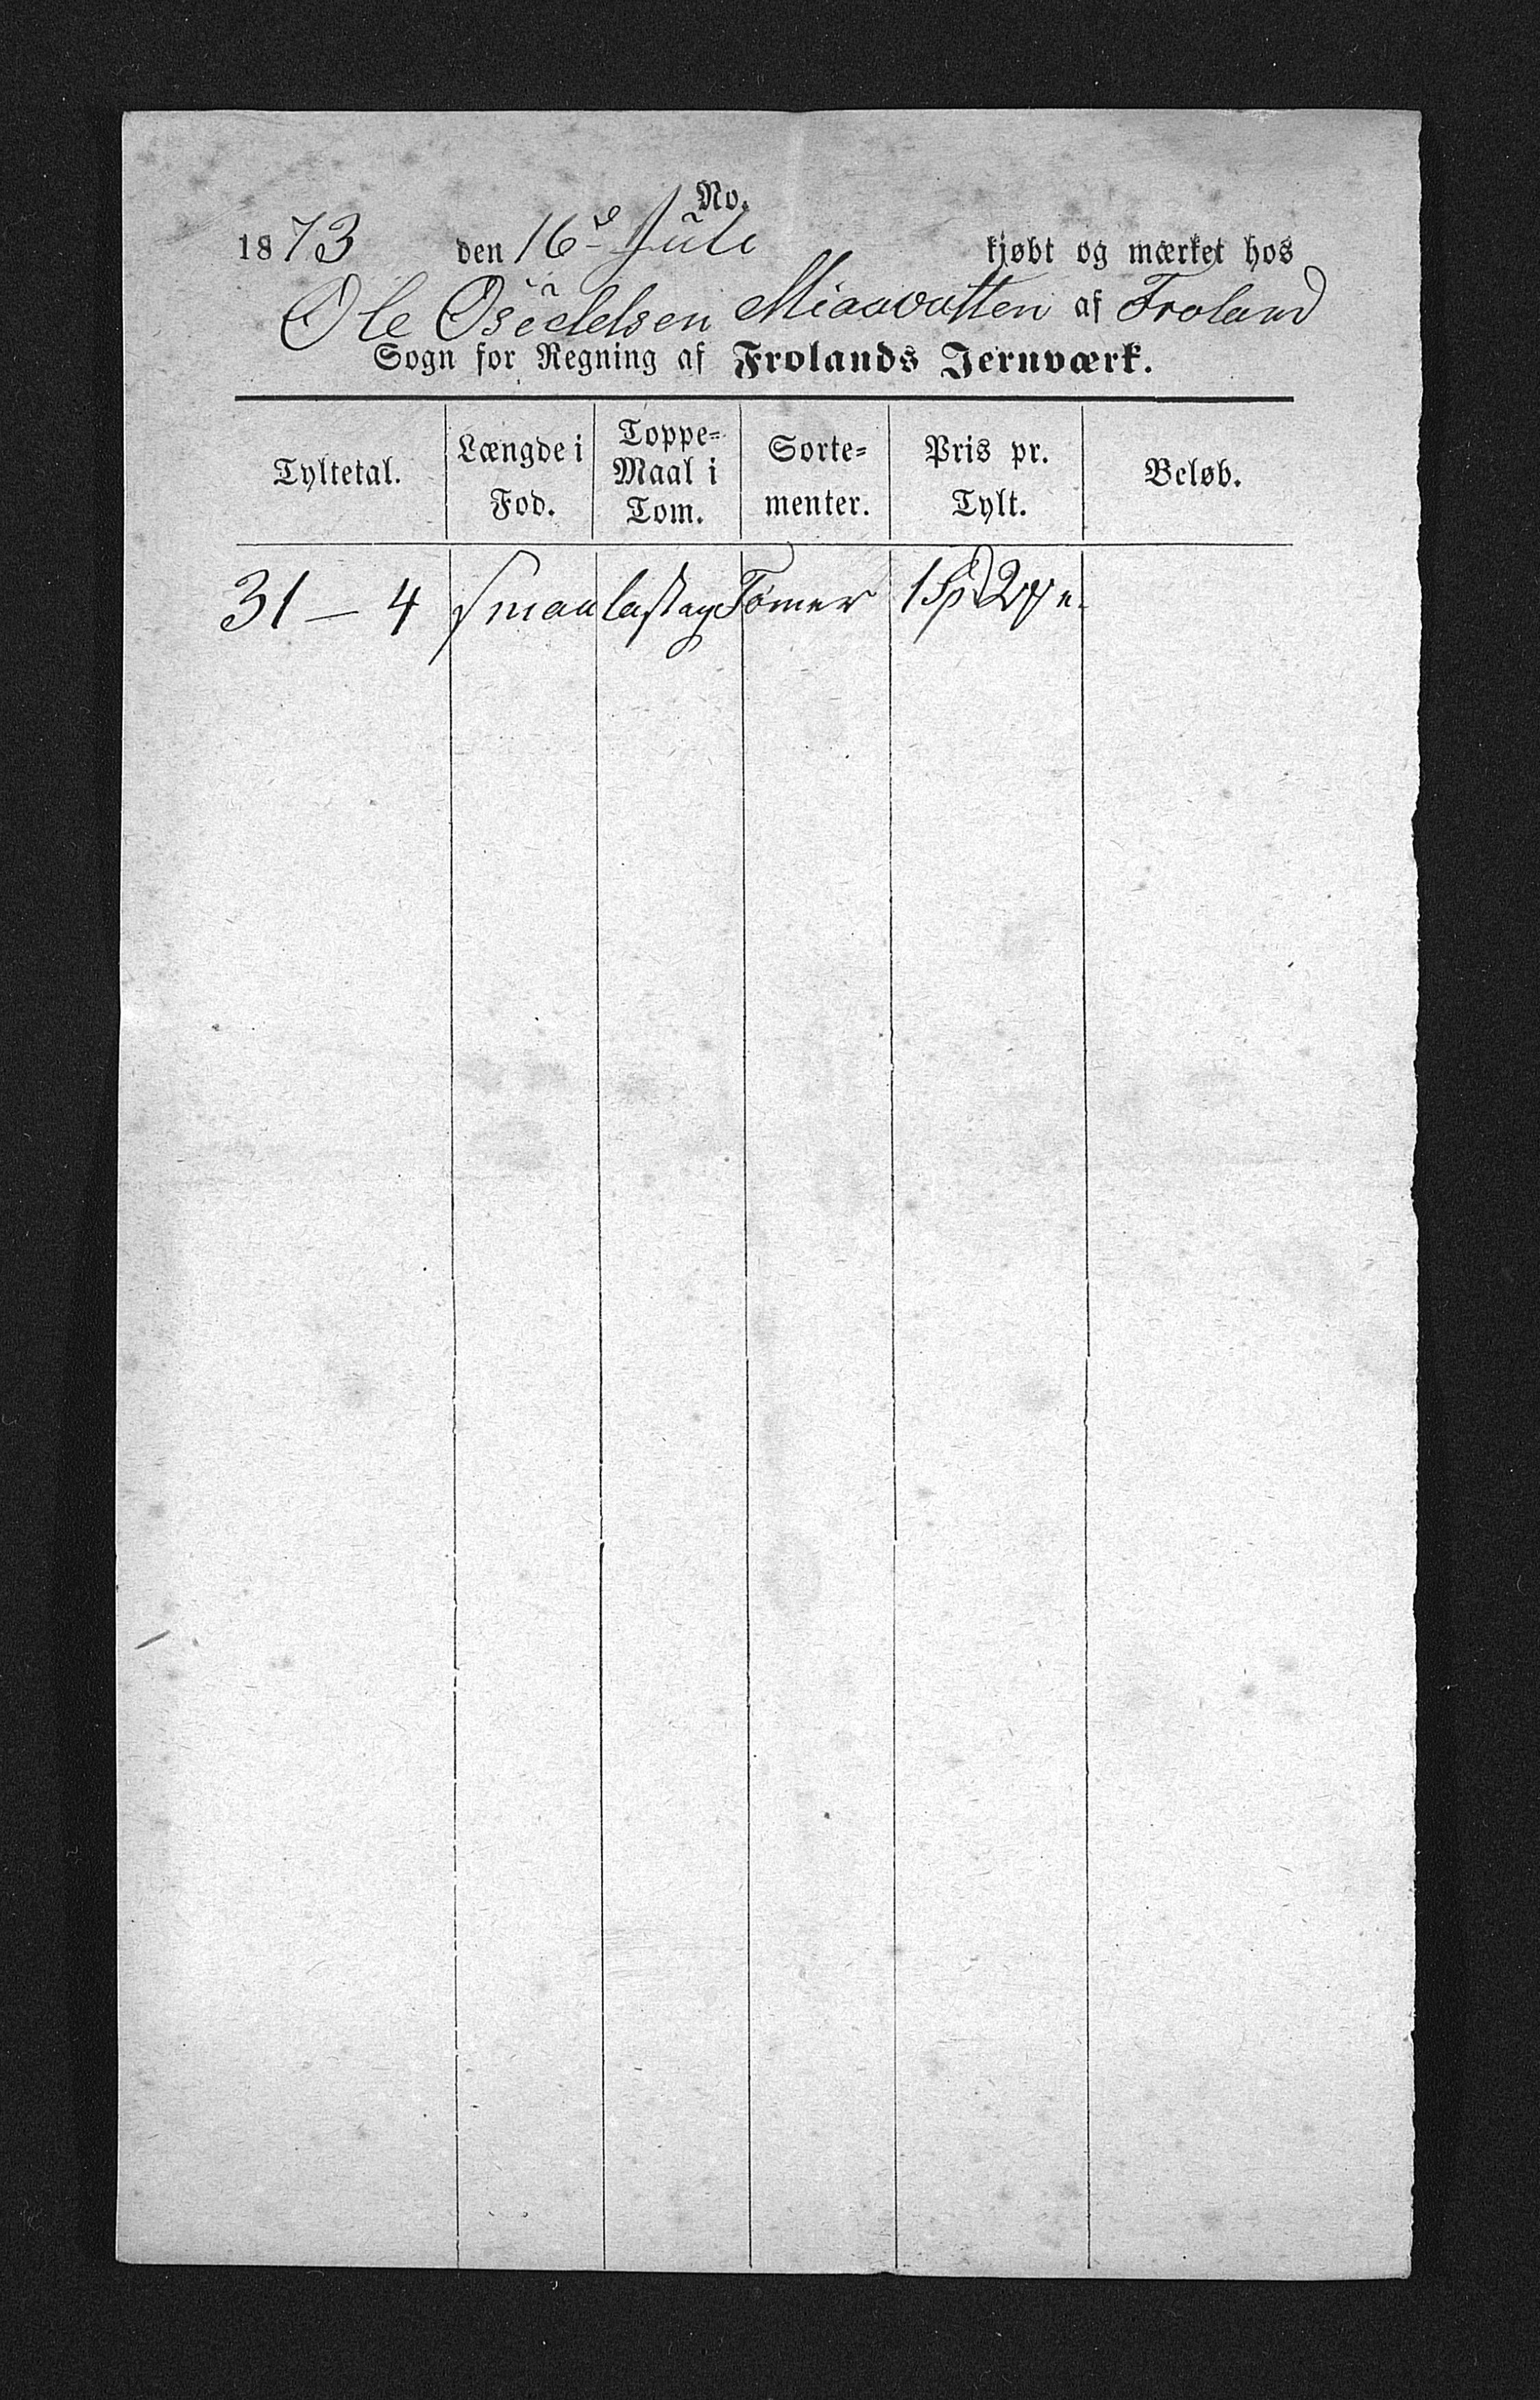 No.
1873 den 16de Juli kjøbt og mærket hos
Ole Osuldsen Miaavatten af Froland
Sogn for Regning af Frolands Jernværk.
Tyltetal. Længde i Fod. Toppe-Maal i Tom. Sorte-menter. Pris pr. Tylt. Beløb.
31 – 4 smaalastag Tømer 1 Sp 2